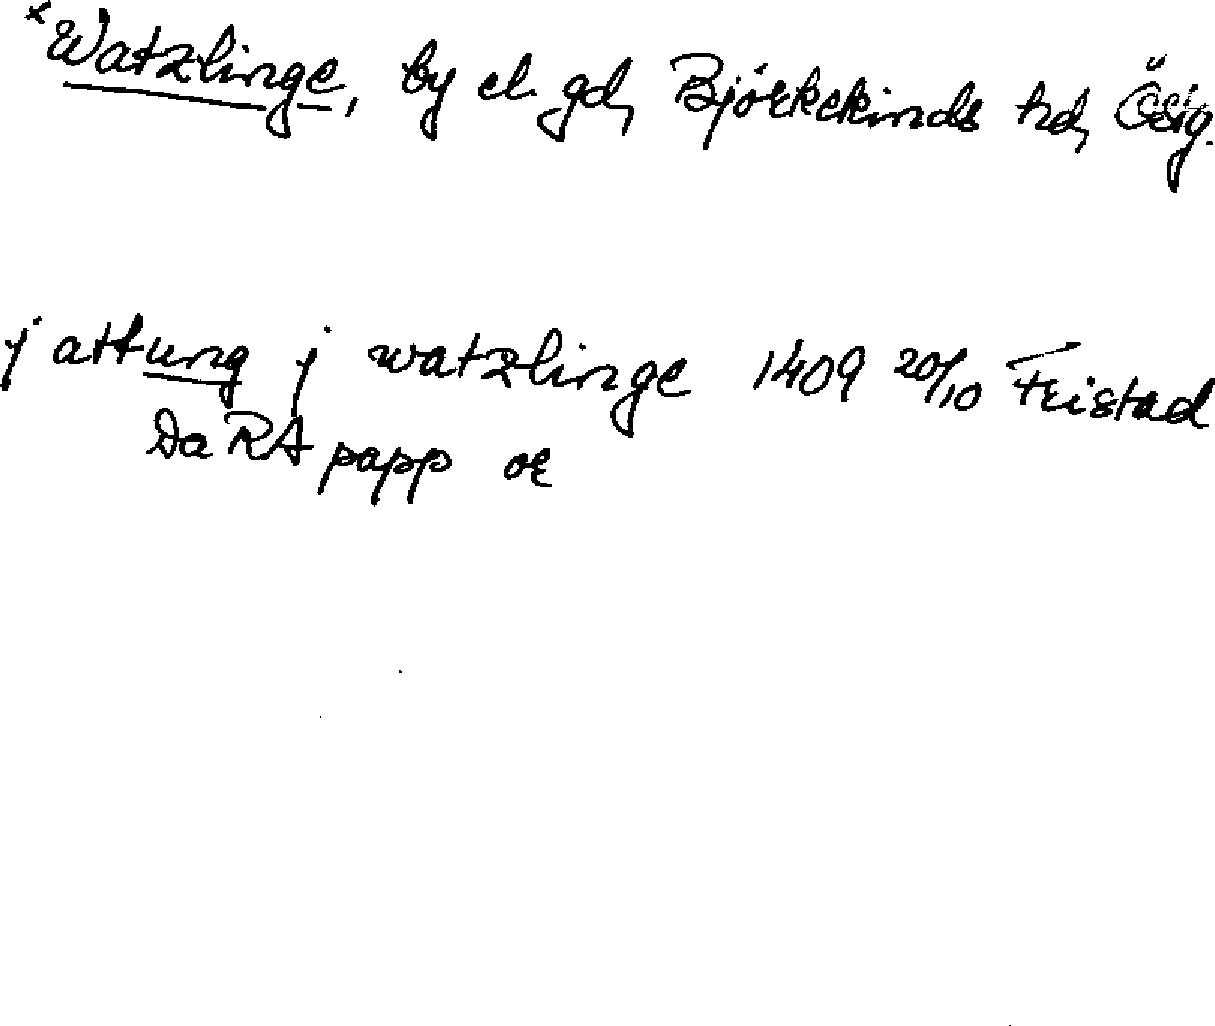 x Watzlinge, by el. gd, Björkekinds hd, Östg.
j attung j watzlinge 1409 20/10 Fristad
Da RA papp or